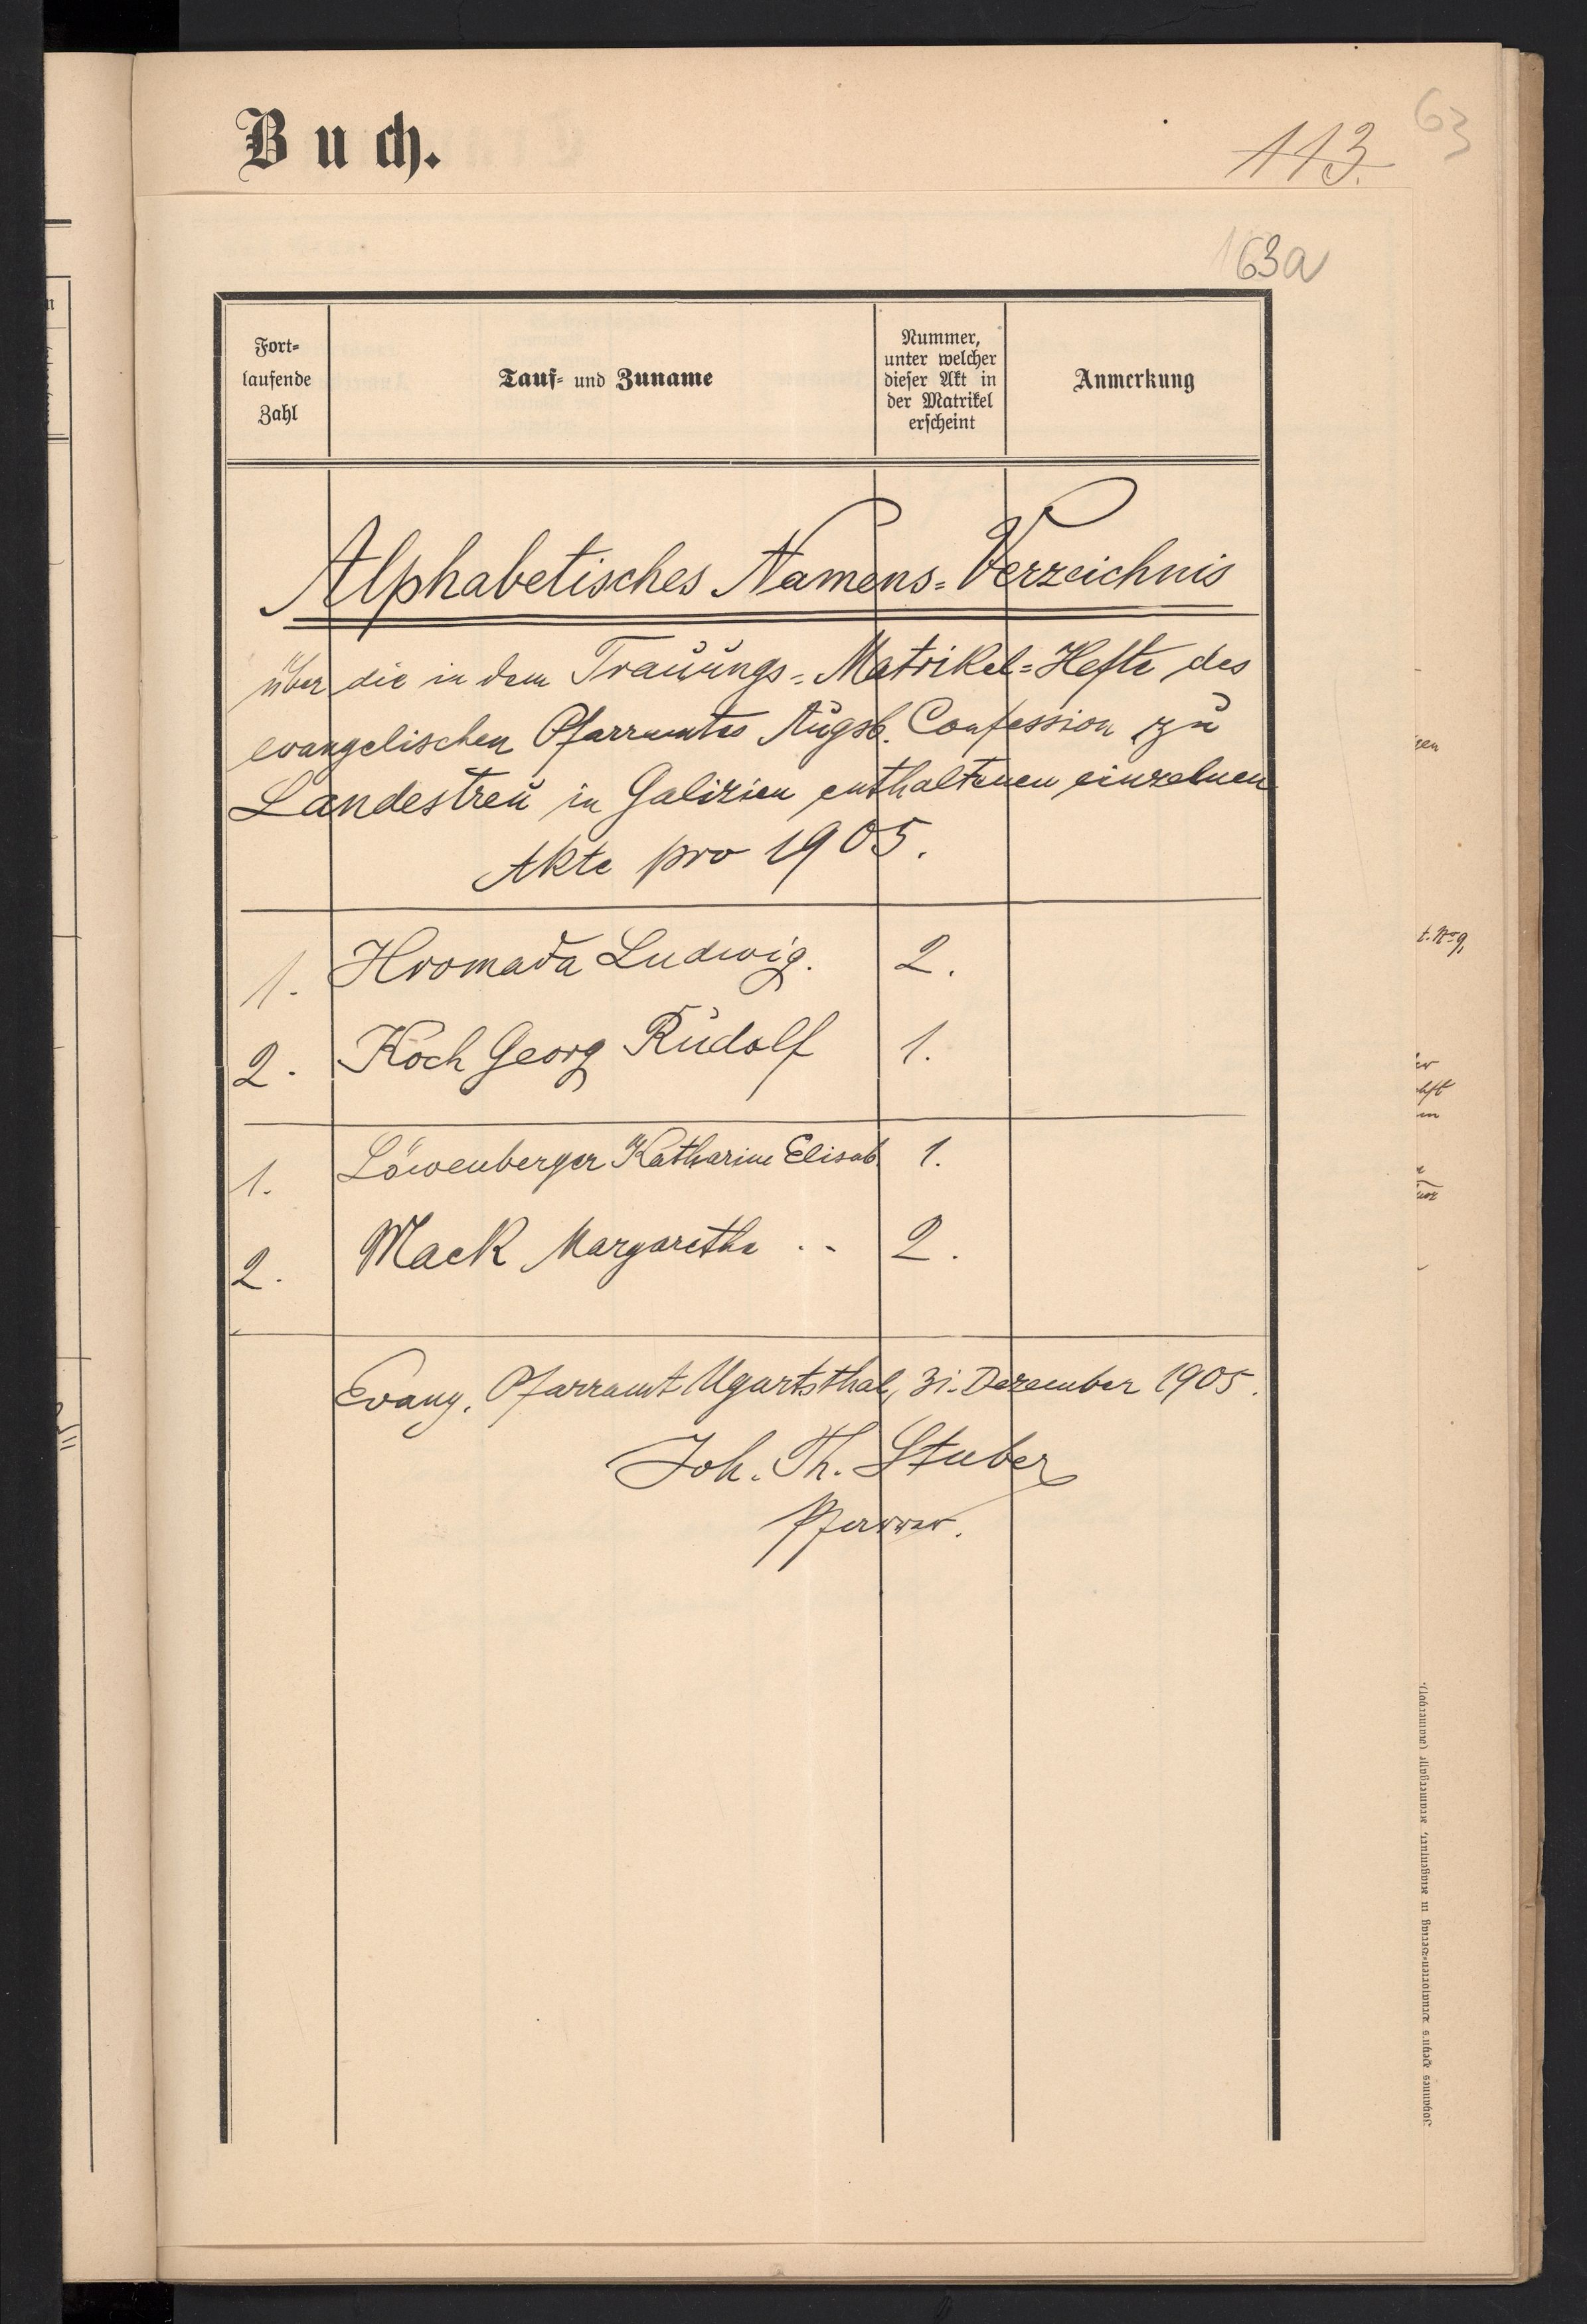 Buch.
113.
63
63a
Fort-
laufende
Zahl
Tauf- und Zuname
Nummer,
unter welcher
dieser Akt in
der Matrikel
erscheint
Anmerkung
Alphabetisches Namens-Verzeichnis
über die in dem Trauungs-Matrikel-Hefte des
evangelischen Pfarramtes Augsb. Confession zu
Landestreu in Galizien enthaltenen einzelnen
Akte pro 1905.
1. Hromada Ludwig. 2.
2. Koch Georg Rudolf 1.
1. Löwenberger Katharine Elisab. 1.
2. Mack Margaretha 2.
Evang. Pfarramt Ugartsthal, 31. Dezember 1905.
Joh. Th. Stuber
Pfarrer.